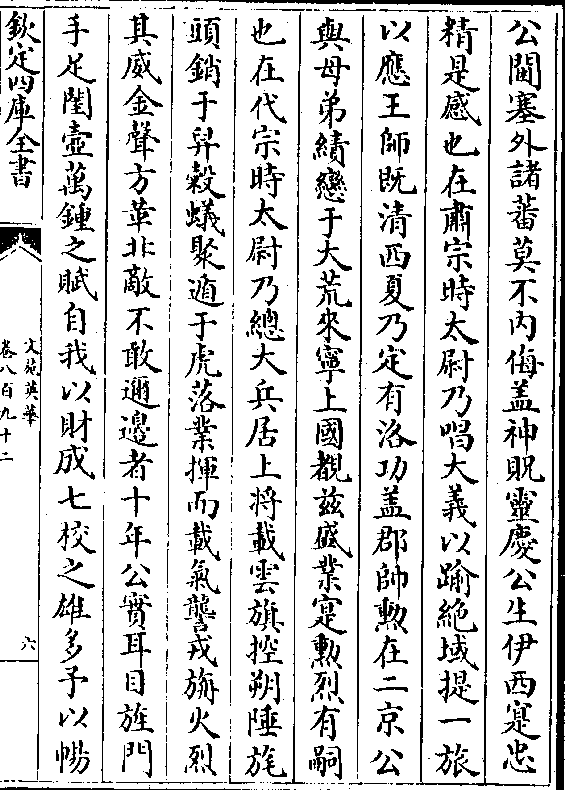 公閫塞外諸蕃莫不内侮盖神貺靈慶公生伊西寔忠
精是感也在肅宗時太尉乃唱大義以踰絶域提一旅
以應王師既清西夏乃定有洛功盖郡帥勲在二京公
與母弟績戀于大荒來寧上國觀兹盛業寔勲烈有嗣
也在代宗時太尉乃總大兵居上将載雲旗控朔陲旄
頭銷于昇穀蟻聚遁于虎落業揮而載氣讋戎旃火烈
其威金聲方革北敵不敢邇邊者十年公實耳目旌門
手足閨壼萬鍾之賦自我以財成七校之雄多予以暢
欽定四庫全書
文苑英華
卷八百九十二
六